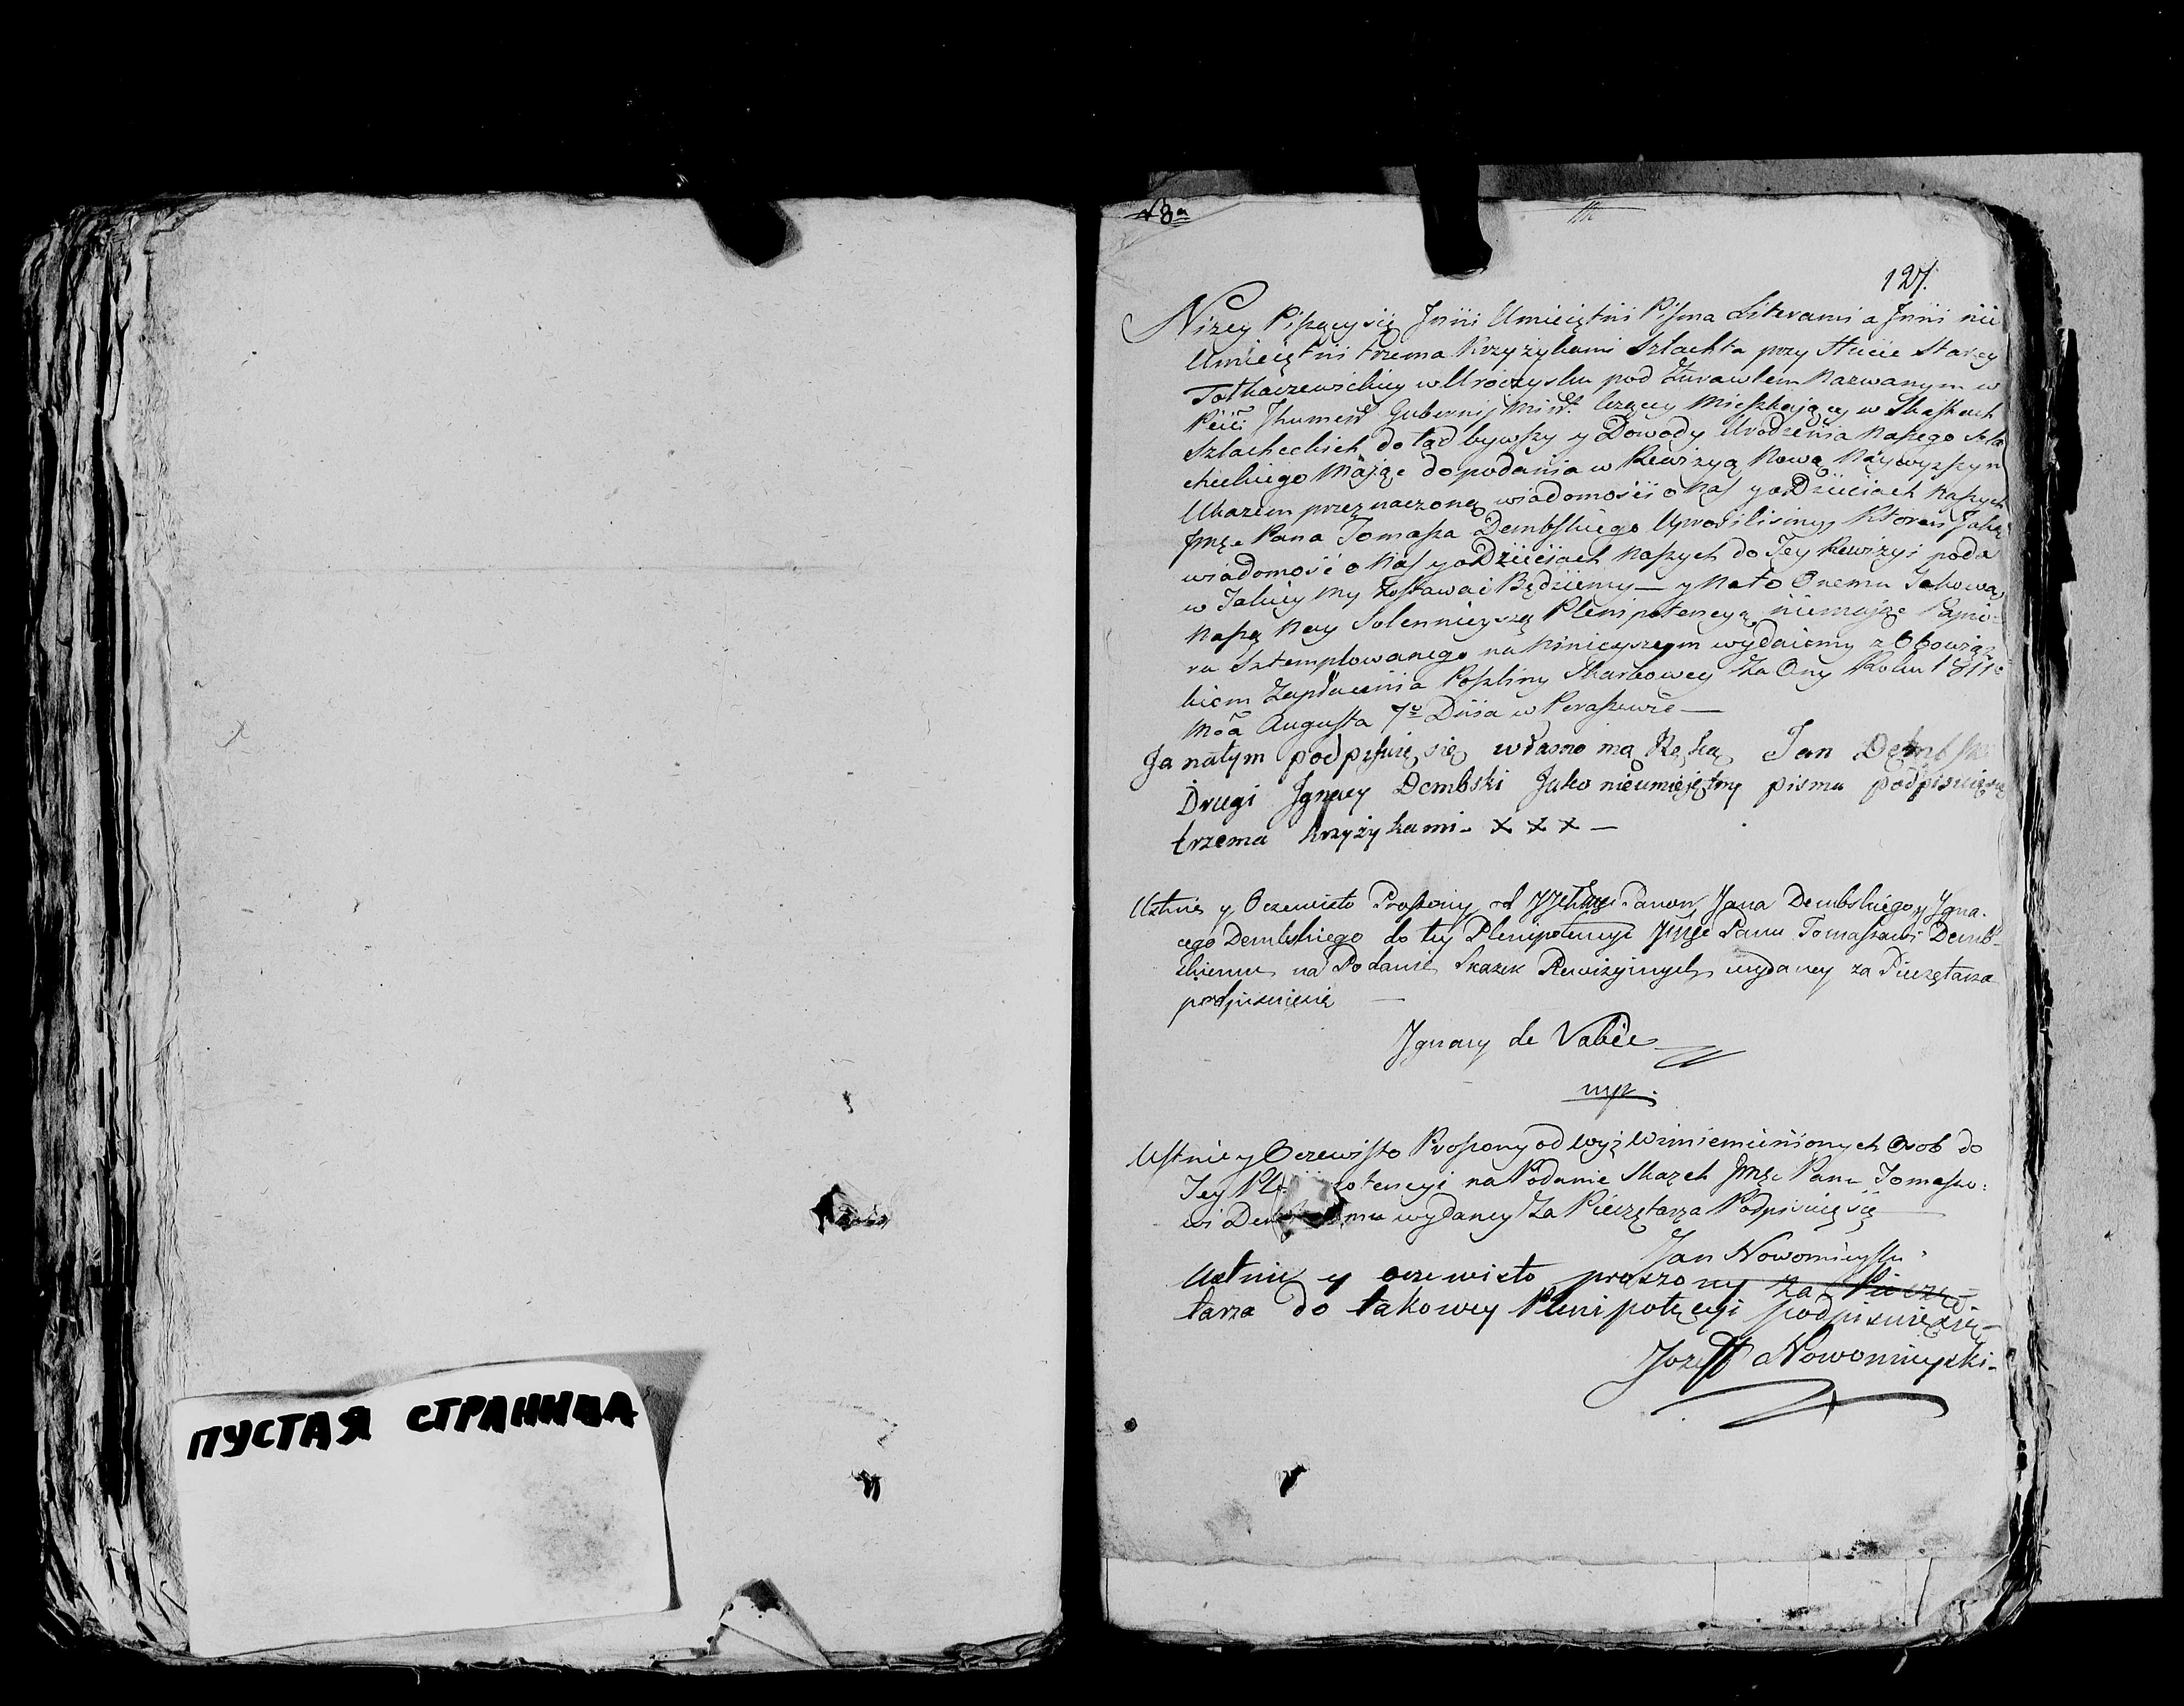 ПУСТАЯ СТРАНИЦА
127.
Niżey Piszący się Jnni Umieiętni Pisma Literami a Jnni nie
Umieiętni trzema Krzyżykami Szlachta przy Hucie Starey
w Uroczysku pod Żurawlem Nazwanym w
Pcie Jhumen Gubernij Miń. Mieszkaiący w Skaskach
Szlacheckich do tąd bywszy y Dowody Urodzenia Naszego Szla
checkiego Maiąc do podania w Rewizyą Nową Naywyższym
Ukazem przeznaczoną wiadomości o Nas y o Dzieciach Naszych
Jmsc Pana Tomasza Dembskiego Uprosilismy, Ktoren Jaką
wiadomość o Nas y o Dzieciach Naszych do Tey Rewizyi poda
w Takiey my Zostawać Będziemy — y Na to Onemu Takową
Naszą Nay Solennieyszą Plenipotencyą niemaiąc Papie=
ru Sztemplowanego na Ninieyszym wydaiemy z Obowiąz
kiem Zapłacenia Poszliny Skarbowey Za Ony Roku 1811º
Mca Augusta 7º Dnia w Peraszewie —
Ja natym podpisuię się własno ną Ręką Jan Dembski
Drugi Jgnacy Dembski Jako nieumieiętny pisma podpisuię się
trzema krzyżykami - x x x —
Ustnie y Oczewisto Proszony od Panow Jana Dembskiego y Jgna-
cego Dembskiego do tey Plenipotencyi Jmsc Panu Tomaszowi Demb-
skiemu na Podanie Skazek Rewizyinych wydaney za Pieczętarza
podpisuię się —
Jgnacy de Valice
mp.
Ustnie y Oczewisto Proszony od wyż Wimieniionych Osob do
Tey Pl otencyi na Podanie Skazek Jmsc Panu Tomaszo=
wi De mu wydaney Za Pieczętarza Podpisuię się —
Jan Nowomieyski
Ustnie y oczewisto proszony za Pieczę
tarza do takowey Plenipotęcyi podpisuię się —
Jozeff Nowomieyski -